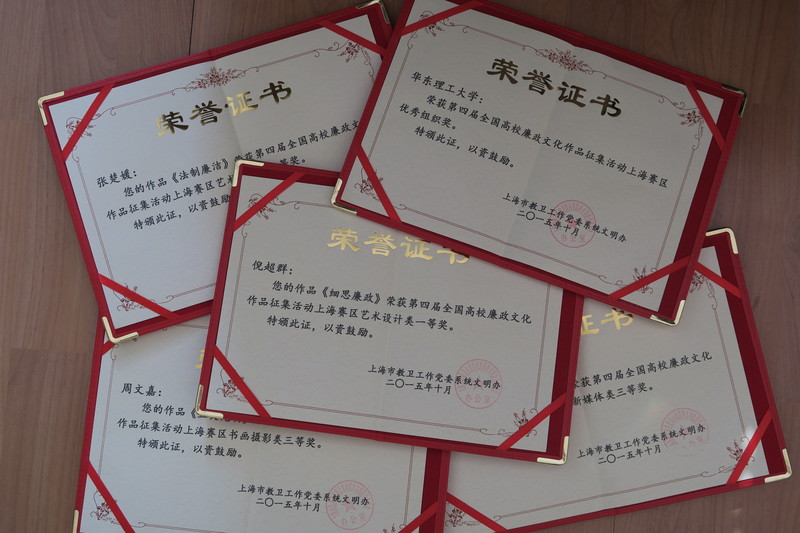 荣誉证书
华东理工大学：
荣获第四届全国高校廉政文化作品征集活动上海赛区
优秀组织奖。
特颁此证，以资鼓励。
上海市教卫工作党委系统文明办
二〇一五年十月
荣誉证书
张楚媛：
您的作品《法制廉洁》荣获第四届全国高校廉政文
作品征集活动上海赛区艺术
等奖。
特颁此证，以资鼓励
荣誉证书
倪超群：
您的作品《细思廉政》荣获第四届全国高校廉政文化
作品征集活动上海赛区艺术设计类一等奖。
特颁此证，以资鼓励。
上海市教卫工作党委系统文明办
二〇一五年十月
办公室
周文嘉：
您的作品《
作品征集活动上海赛区书画摄影类三等奖。
特颁此证，以资鼓励。
上海市教卫工作党委系统文明办
二〇一五年十月
办公室
证书
荣获第四届全国高校廉政文化
新媒体类三等奖。
上海市教卫工作党委系统文明办
二〇一五年十月